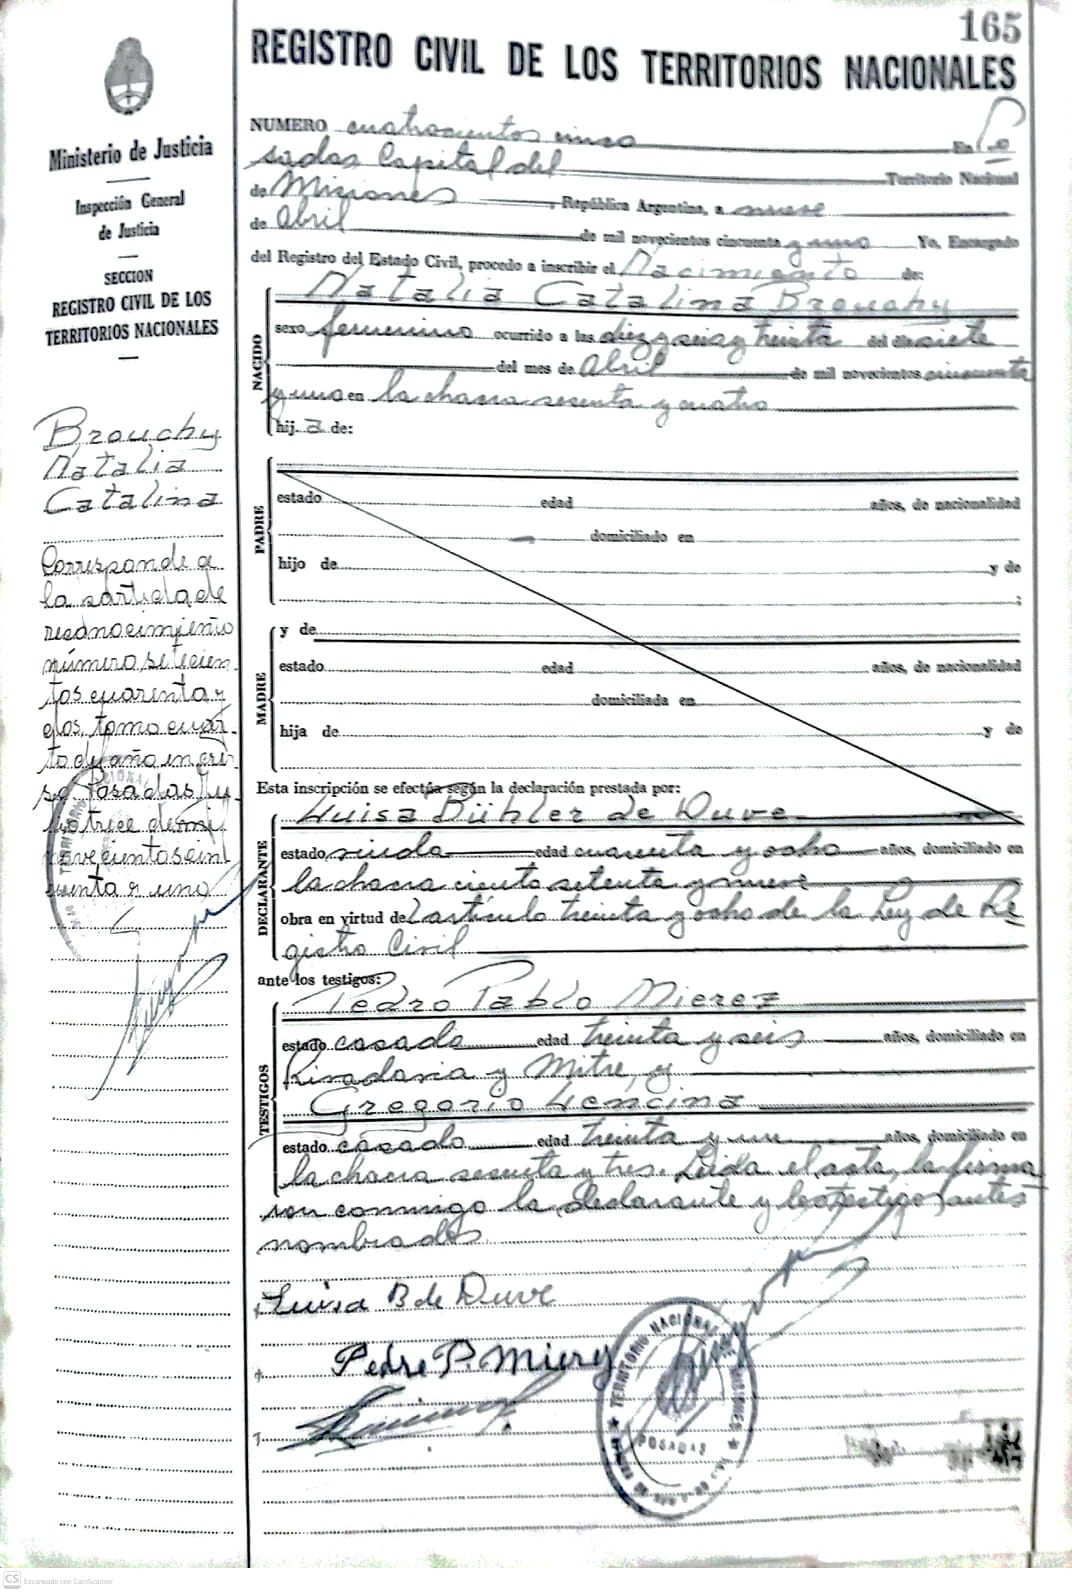 165
REGISTRO CIVIL DE LOS TERRITORIOS NACIONALES
Ministerio de Justicia
Inspección General
de Justicia
SECCION
REGISTRO CIVIL DE LOS
TERRITORIOS NACIONALES
Brouchy
Natalia
Catalina
Corresponde a
la partida de
reconocimiento
número setecien-
tos cuarenta y
dos, tomo cuar-
to del año en cur-
so Posadas, ju-
lio trece de mil
novecientos cin
cuenta y uno
NUMERO cuatrocientos cinco En Po
sadas Capital del Territorio Nacional
de Misiones, República Argentina, a nueve
de Abril de mil novecientos cincuenta y uno Yo, Encargado
del Registro del Estado Civil, procedo a inscribir el Nacimiento de:
NACIDO
Natalia Catalina Brouchy
sexo femenino ocurrido a las diez y seis y treinta del día siete
del mes de Abril de mil novecientos cincuenta
y uno en la chacra sesenta y cuatro
hij a de:
PADRE
estado edad años, de nacionalidad
domiciliado en
hijo de y de
;
MADRE
y de
estado edad años, de nacionalidad
domiciliada en
hija de y de
Esta inscripción se efectúa según la declaración prestada por:
DECLARANTE
Luisa Bühler de Duve
estado viuda edad cuarenta y ocho años, domiciliado en
la chacra ciento setenta y nueve
obra en virtud del artículo treinta y ocho de la Ley de Re
gistro Civil
ante los testigos:
TESTIGOS
Pedro Pablo Mierez
estado casado edad treinta y seis años, domiciliado en
Rivadavia y Mitre, y
Gregorio Lencina
estado casado edad treinta y un años, domiciliado en
la chacra sesenta y tres. Leida el acta, la firma
ron conmigo la declarante y los testigos antes
nombrados
Luisa B de Duve
Pedro P. Mierez
TERRITORIO NACIONAL DE MISIONES
POSADAS
CS Escaneado con CamScanner